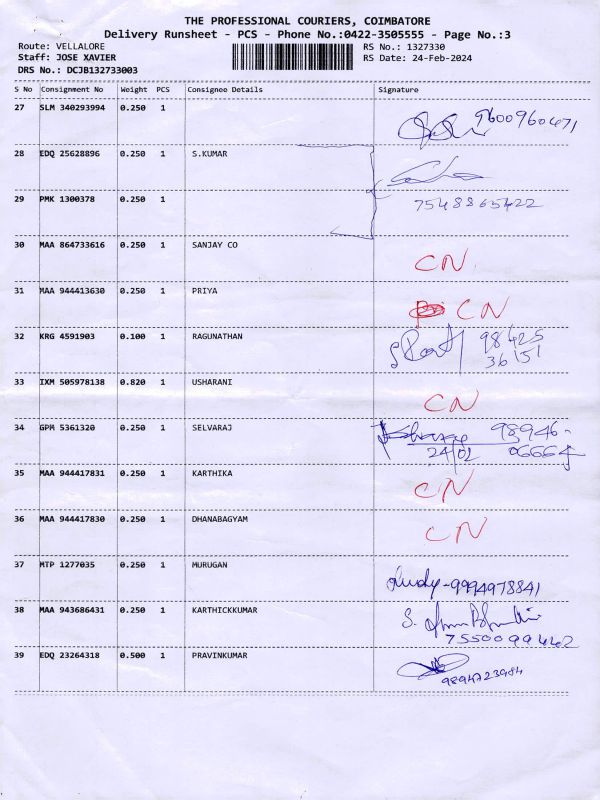 THE PROFESSIONAL COURIERS, COIMBATORE
Delivery Runsheet - PCS - Phone No.:0422-3505555 - Page No.:3
Route: VELLALORE RS No.: 1327330
Staff: JOSE XAVIER RS Date: 24-Feb-2024
DRS No.: DCJB132733003
S No Consignment No Weight PCS Consignee Details Signature
27 SLM 340293994 0.250 1 9600960471
28 EDQ 25628896 0.250 1 S.KUMAR
29 PMK 1300378 0.250 1 7548865422
30 MAA 864733616 0.250 1 SANJAY CO CN
31 MAA 944413630 0.250 1 PRIYA CN
32 KRG 4591903 0.100 1 RAGUNATHAN 98425
36151
33 IXM 505978138 0.820 1 USHARANI CN
34 GPM 5361320 0.250 1 SELVARAJ 98946-
24/02 06664
35 MAA 944417831 0.250 1 KARTHIKA CN
36 MAA 944417830 0.250 1 DHANABAGYAM CN
37 MTP 1277035 0.250 1 MURUGAN -9994978841
38 MAA 943686431 0.250 1 KARTHICKKUMAR S.
7550099442
39 EDQ 23264318 0.500 1 PRAVINKUMAR
9894723984